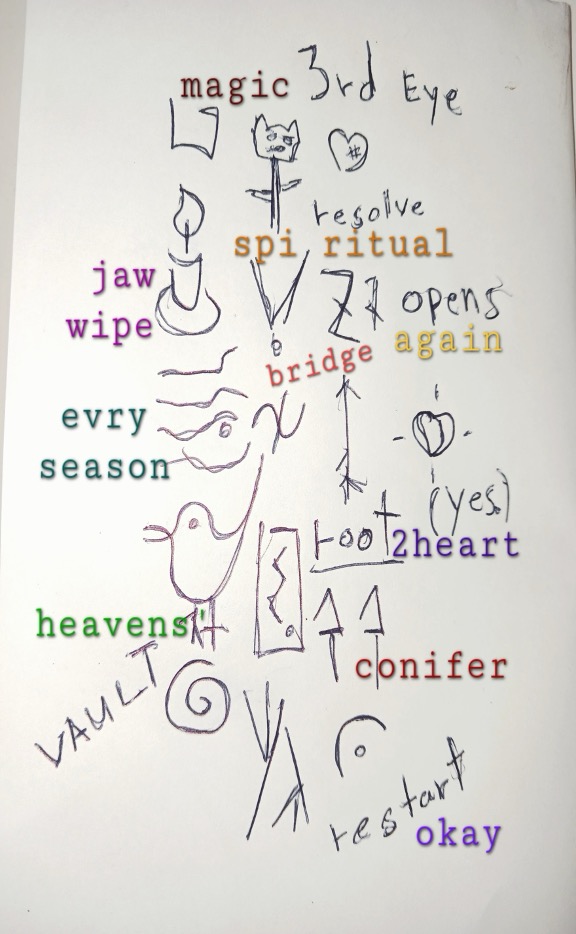 magic 3rd Eye
resolve
spi ritual
jaw
wipe
opens
again
bridge
evry
season
(yes.)
root 2heart
heavens'
conifer
VAULT
restart
okay